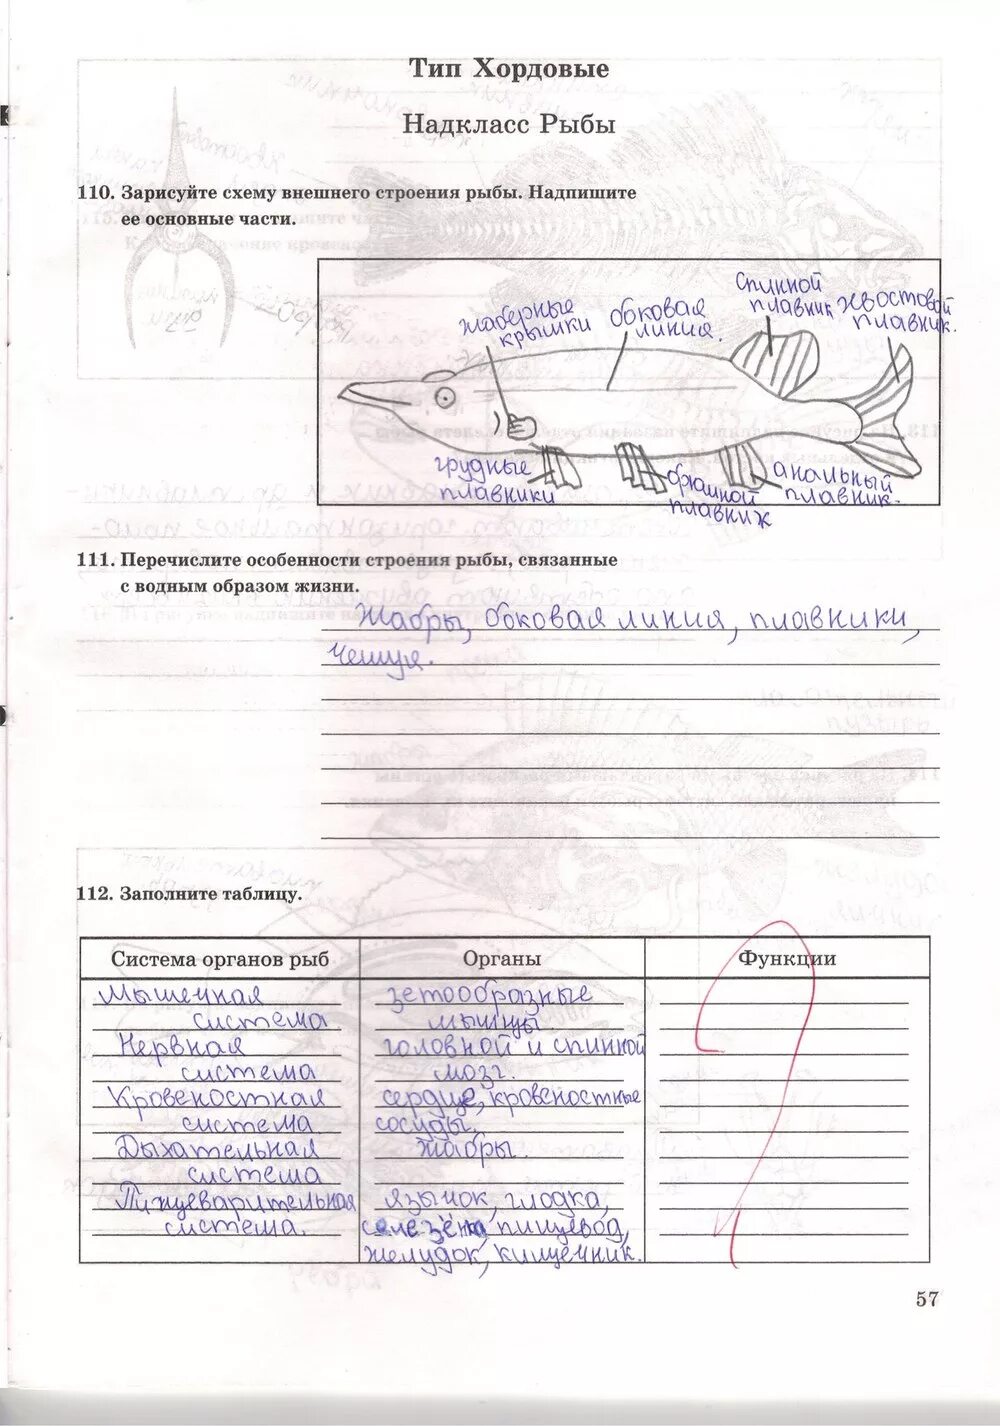 Тип Хордовые
Надкласс Рыбы
110. Зарисуйте схему внешнего строения рыбы. Надпишите
ее основные части.
жаберные
крышки
боковая
линия.
спинной
плавник
хвостовой
плавник.
грудные
плавники
брюшной
плавник
анальный
плавник.
111. Перечислите особенности строения рыбы, связанные
с водным образом жизни.
Жабры, боковая линия, плавники,
чешуя.
112. Заполните таблицу.
Система органов рыб
Органы
Функции
Мышечная
система
зетообразные
мышцы
Нервная
система
головной и спинной
мозг.
Кровеностная
система
сердце, кровеностные
сосуды.
Дыхательная
система
жабры.
Пищеварительная
система.
язычок, глодка,
селезёнка, пищевод,
желудок, кишечник.
57